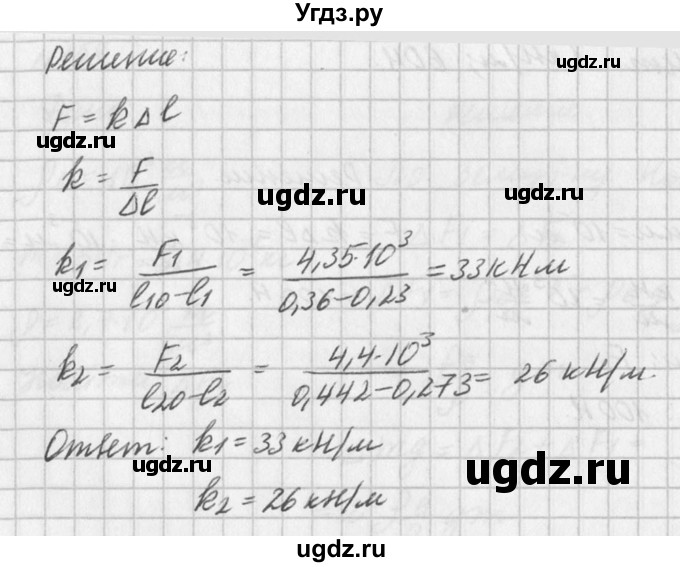 Угдз.ру
Решение:
F = kΔl
ugdz.ru
k = F/Δl
ugdz.ru
ugdz.ru
k1 = F1/(l10-l1) = 4,35·10³/(0,36-0,23) = 33 кНм
ugdz.ru
ugdz.ru
k2 = F2/(l20-l2) = 4,4·10³/(0,442-0,273) = 26 кН/м.
ugdz.ru
Ответ: k1 = 33 кН/м
ugdz.ru
ugdz.ru
k2 = 26 кН/м
ugdz.ru